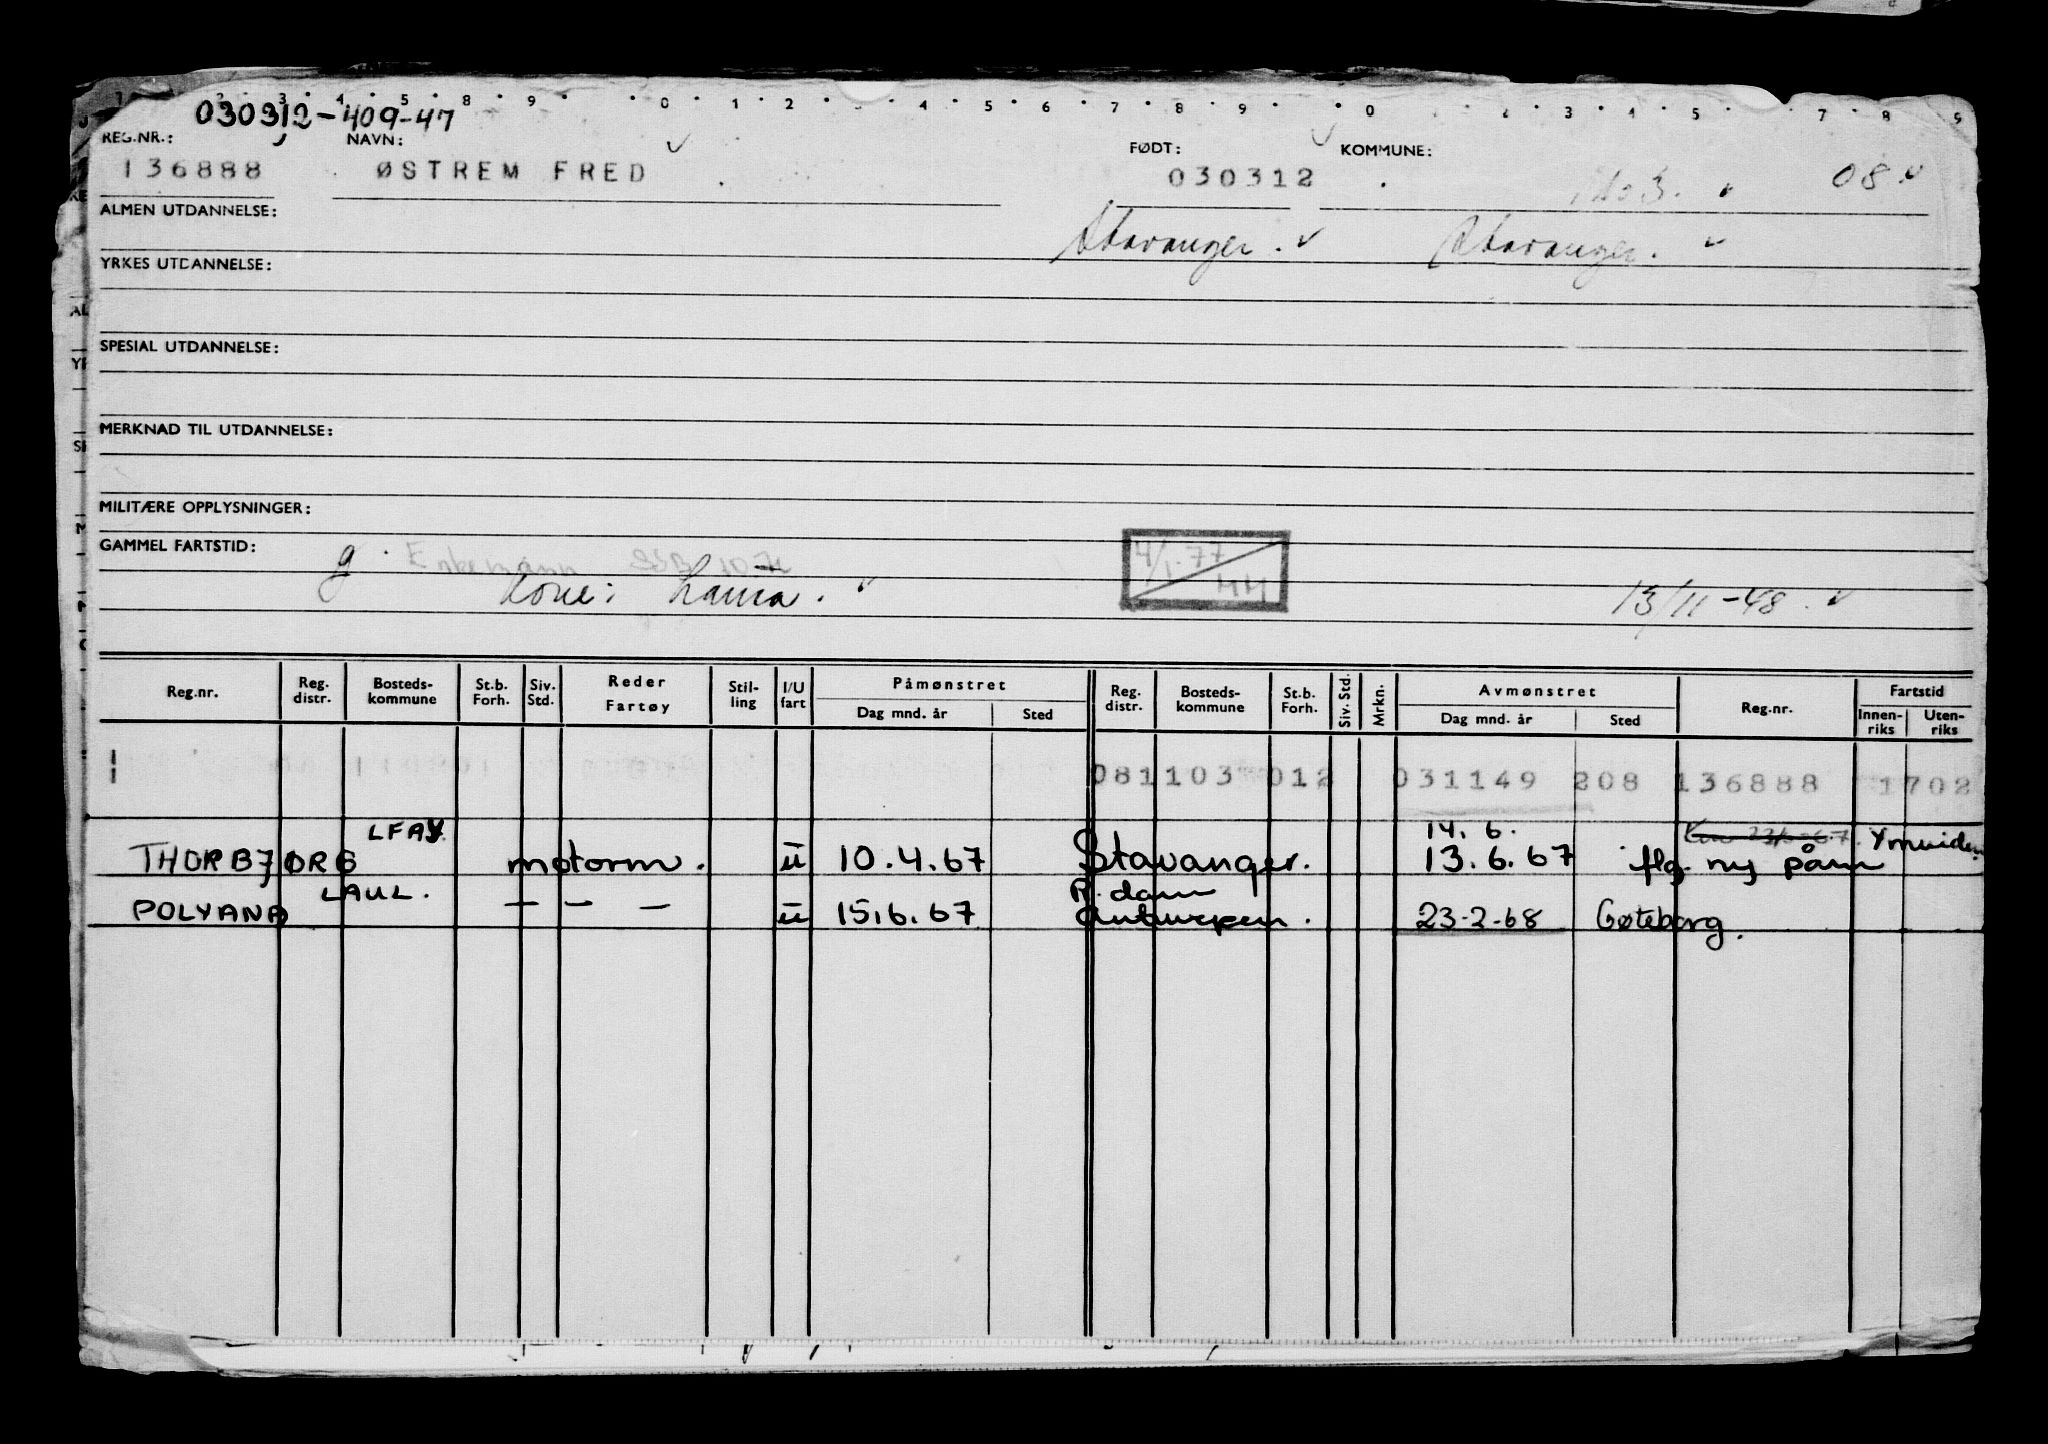 030312-409-47
REG.NR.: NAVN: FØDT: KOMMUNE:
136888 ØSTREM FRED 030312 1103. 08.
ALMEN UTDANNELSE: Stavanger. Stavanger.
YRKES UTDANNELSE:
SPESIAL UTDANNELSE:
MERKNAD TIL UTDANNELSE:
MILITÆRE OPPLYSNINGER:
GAMMEL FARTSTID: g. Enkemann 4/1.77
Kone: 13/11-48.
Reg.nr. Reg. distr. Bosteds-kommune St.b. Forh. Siv. Std. Reder Fartøy Stil-ling I/U fart Påmønstret Dag mnd. år Sted Reg. distr. Bosteds-kommune St.b. Forh. Siv. Std. Mrkn. Avmønstret Dag mnd. år Sted Reg.nr. Fartstid Innen-riks Uten-riks
081103 012 031149 208 136888 1702
LFAY. 14. 6. Ymuiden.
THORBJØRG motorm. u 10.4.67 Stavanger. 13.6.67 flg. ny påm
LAUL. R.dam
POLYANA — — — u 15.6.67 Antwerpen. 23-2-68 Gøteborg.